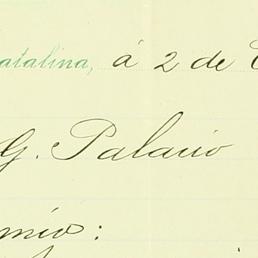 atalina, á 2 de
G. Palacio
mio: